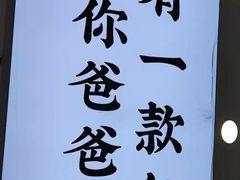 有一款
你爸爸